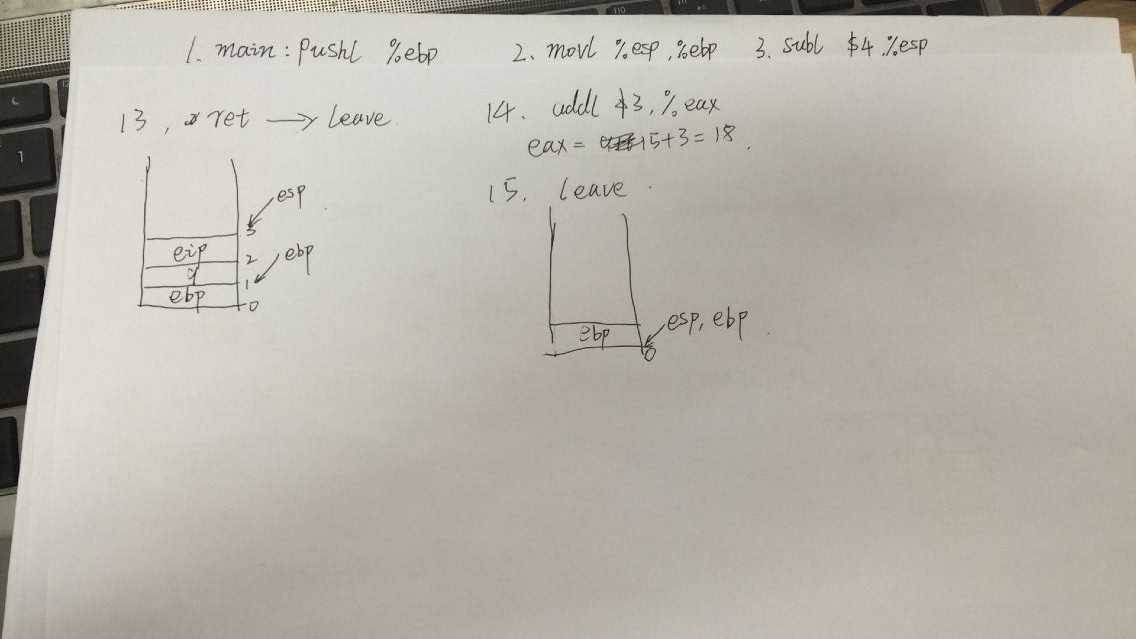 1. main : pushl %ebp 2. movl %esp, %ebp 3. subl $4, %esp
13, ret → leave
14. addl $3, %eax
eax = 15+3=18.
15. leave.
esp
3
eip 2 ebp
9 1
ebp 0
esp, ebp
ebp
0